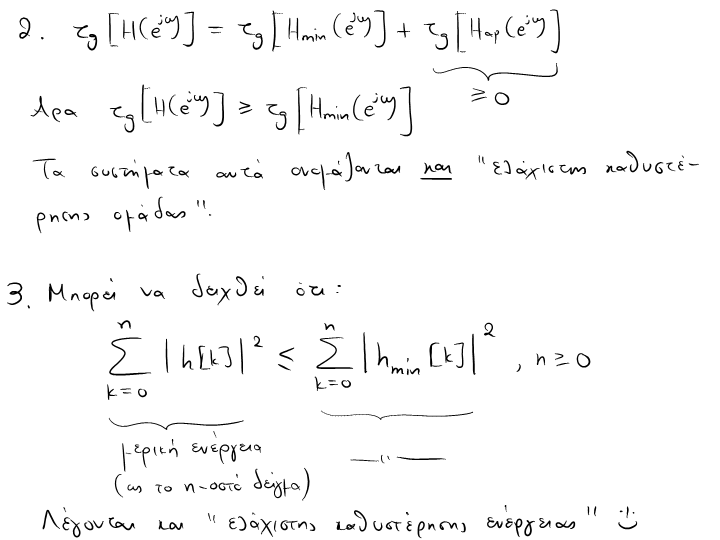 2. τg[H(e^jω)] = τg[Hmin(e^jω)] + τg[Hap(e^jω)]
≥ 0
Αρα τg[H(e^jω)] ≥ τg[Hmin(e^jω)]
Τα συστήματα αυτά ονομάζονται και "ελάχιστης καθυστέ-
ρησης ομάδας".
3. Μπορεί να δειχθεί ότι:
∑_{k=0}^{n} |h[k]|² ≤ ∑_{k=0}^{n} |hmin[k]|², n ≥ 0
μερική ενέργεια —〃—
(ως το n-οστό δείγμα)
Λέγονται και "ελάχιστης καθυστέρησης ενέργειας" :)